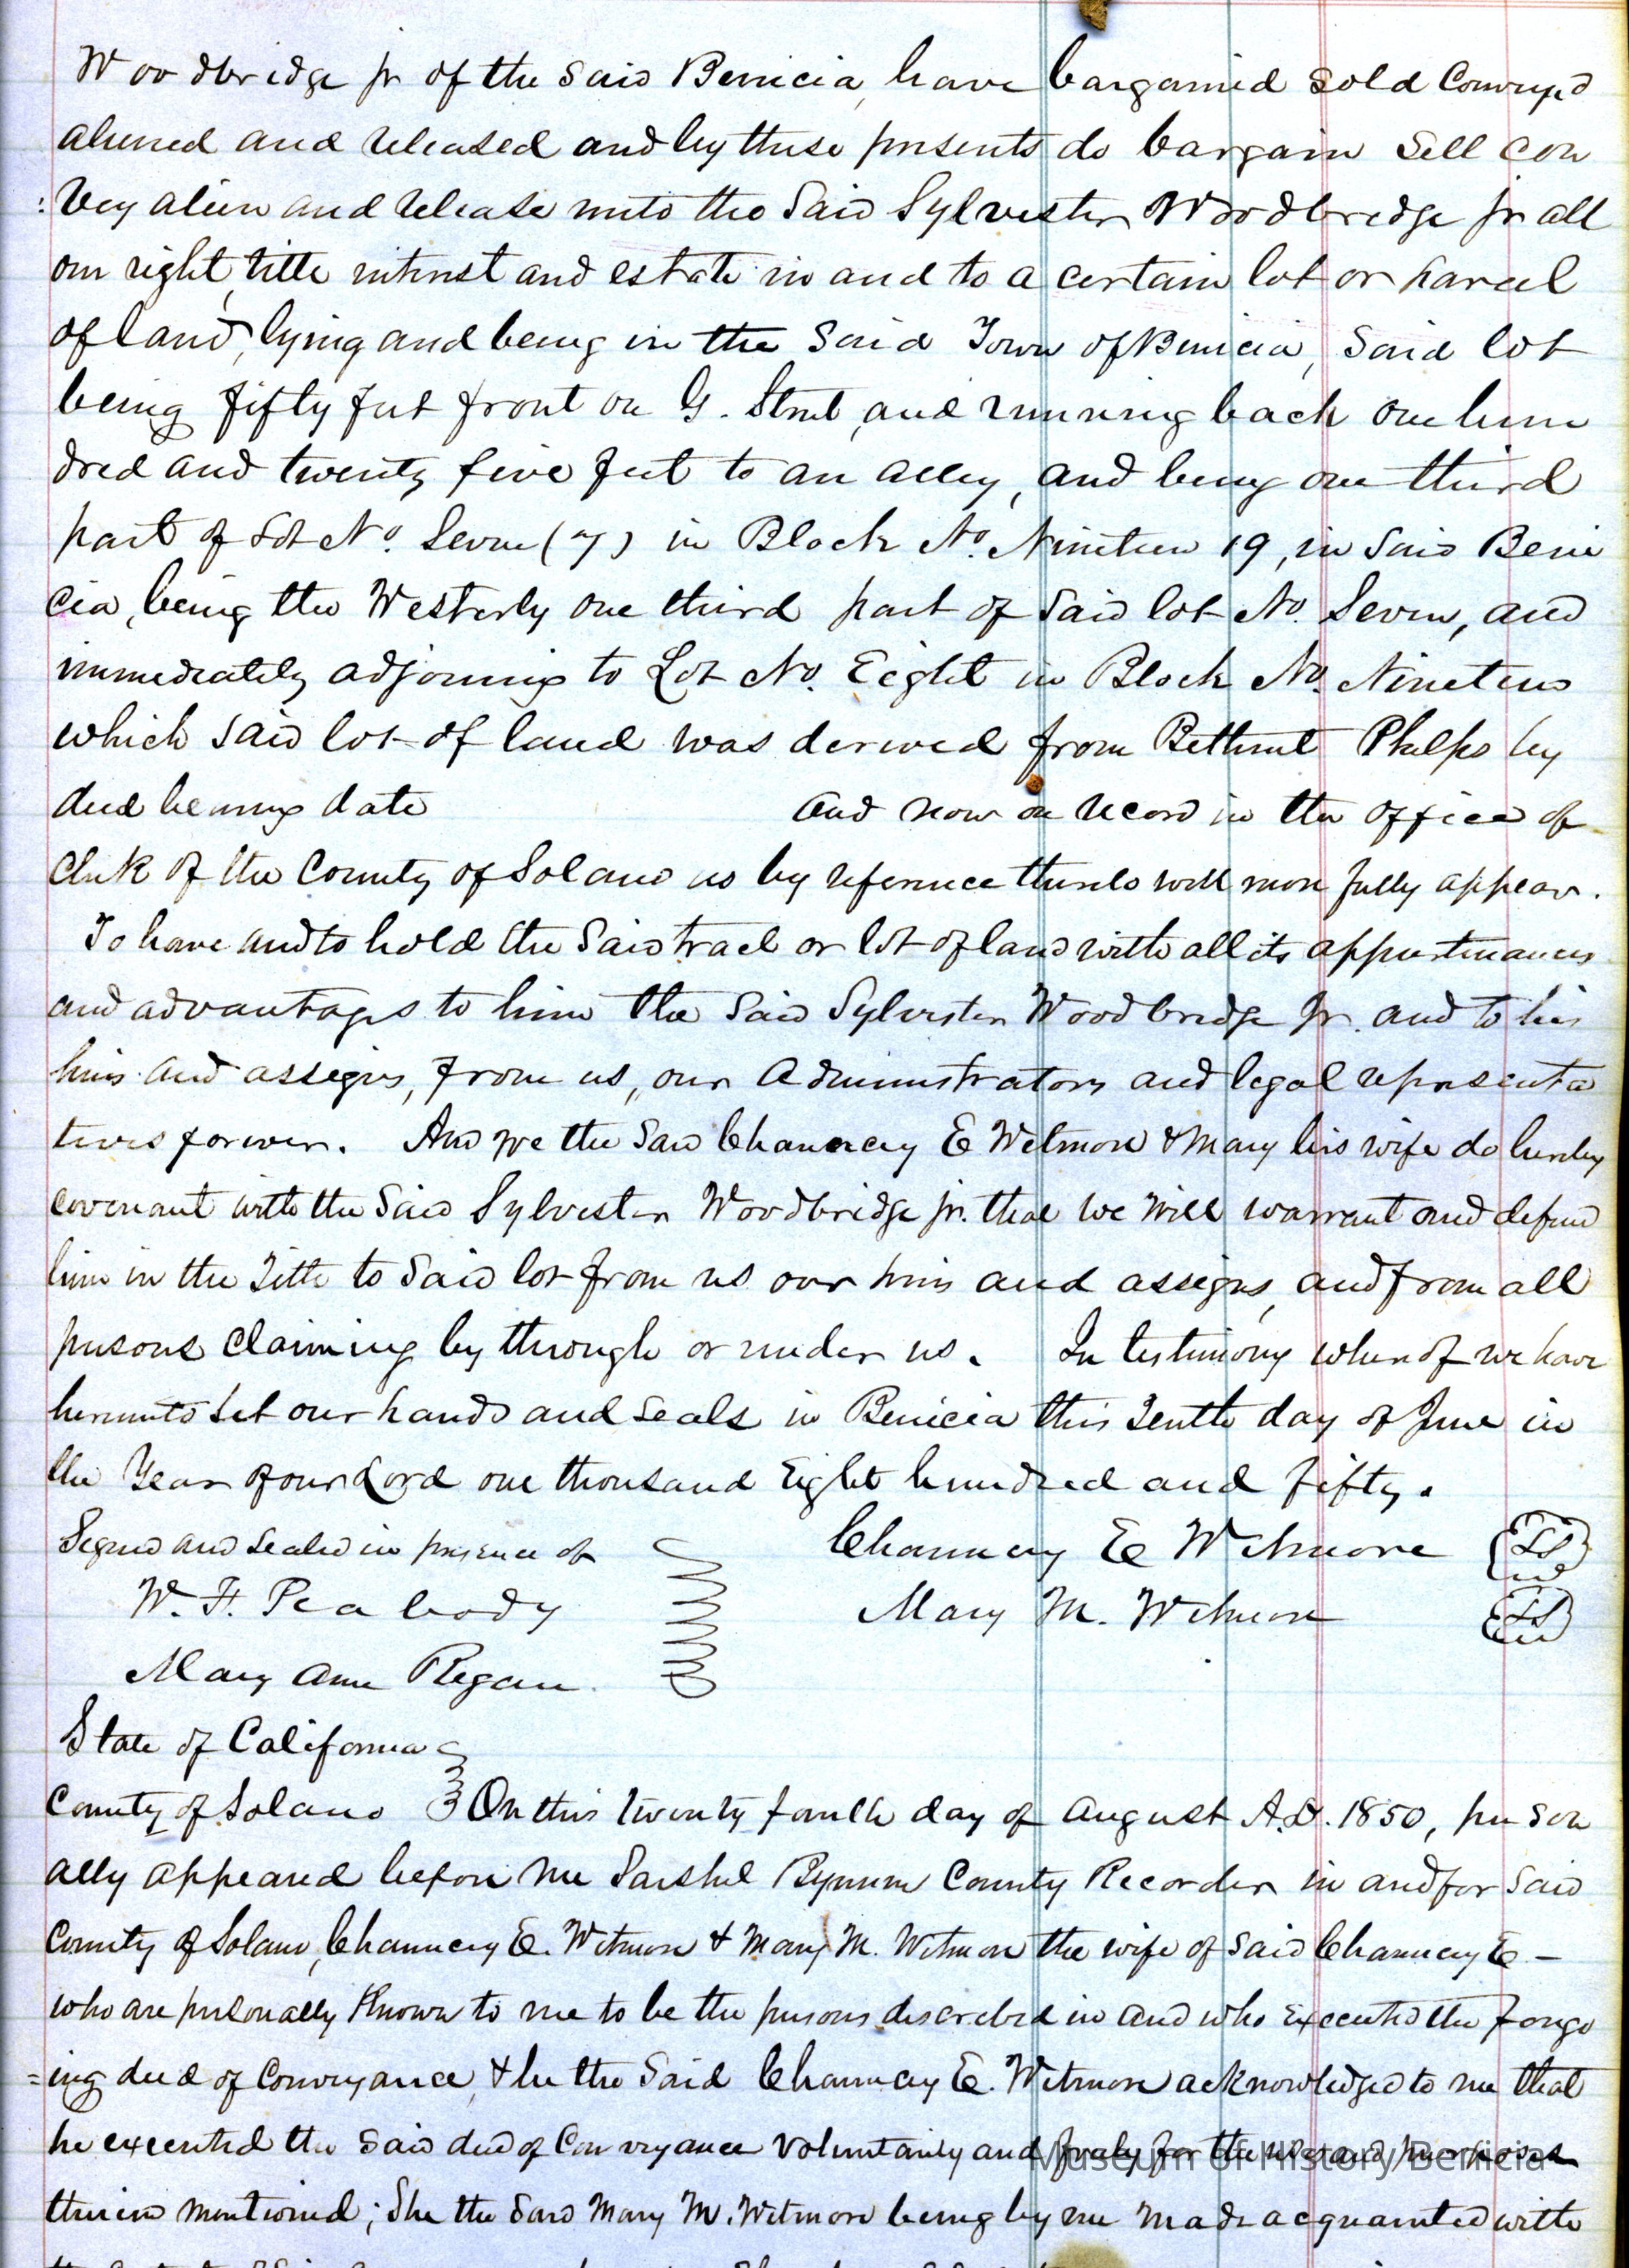 Woodbridge jr of the said Benicia, have bargained sold Conveyed
aliened and released and by these presents do bargain sell con
:vey alien and release unto the said Sylvester Woodbridge jr all
our right, title interest and estate in and to a certain lot or parcel
of land, lying and being in the said Town of Benicia, said lot
being fifty feet front on G. Street, and running back one hun
dred and twenty five feet to an alley, and being one third
part of Lot No. Seven (7) in Block No. Nineteen 19, in said Beni
cia, being the Westerly one third part of said lot No. Seven, and
immediately adjoining to Lot No. Eight in Block No. Nineteen
which said lot of land was derived from Bethuel Phelps by
deed bearing date and now on record in the office of
Clerk of the County of Solano as by reference thereto will more fully appear.
To have and to hold the said tract or lot of land with all its appurtenances
and advantages to him the said Sylvester Woodbridge Jr. and to his
heirs and assigns, from us, our administrators and legal representa
tives forever. And we the said Chauncey E Wetmore & Mary his wife do hereby
covenant with the said Sylvester Woodbridge jr. that we will warrant and defend
him in the Title to said lot from us our heirs and assigns, and from all
persons claiming by through or under us. In testimony whereof we have
hereunto set our hands and seals in Benicia this Tenth day of June in
the Year of our Lord one thousand Eight hundred and fifty.
Signed and sealed in presence of Chauncey E Wetmore LS
W. F. Peabody Mary M. Wetmore LS
Mary Ann Regan.
State of California
County of Solano On this twenty fourth day of August A.D. 1850, person
ally appeared before me Sarshel Bynum County Recorder in and for said
County of Solano, Chauncey E. Wetmore & Mary M. Wetmore the wife of said Chauncey E -
who are personally known to me to be the persons described in and who Executed the forego
=ing deed of Conveyance, & he the said Chauncey E. Wetmore acknowledged to me that
he executed the said deed of Conveyance voluntarily and freely for the uses and purposes
therein mentioned; She the said Mary M. Wetmore being by me made acquainted with
Museum of History Benicia